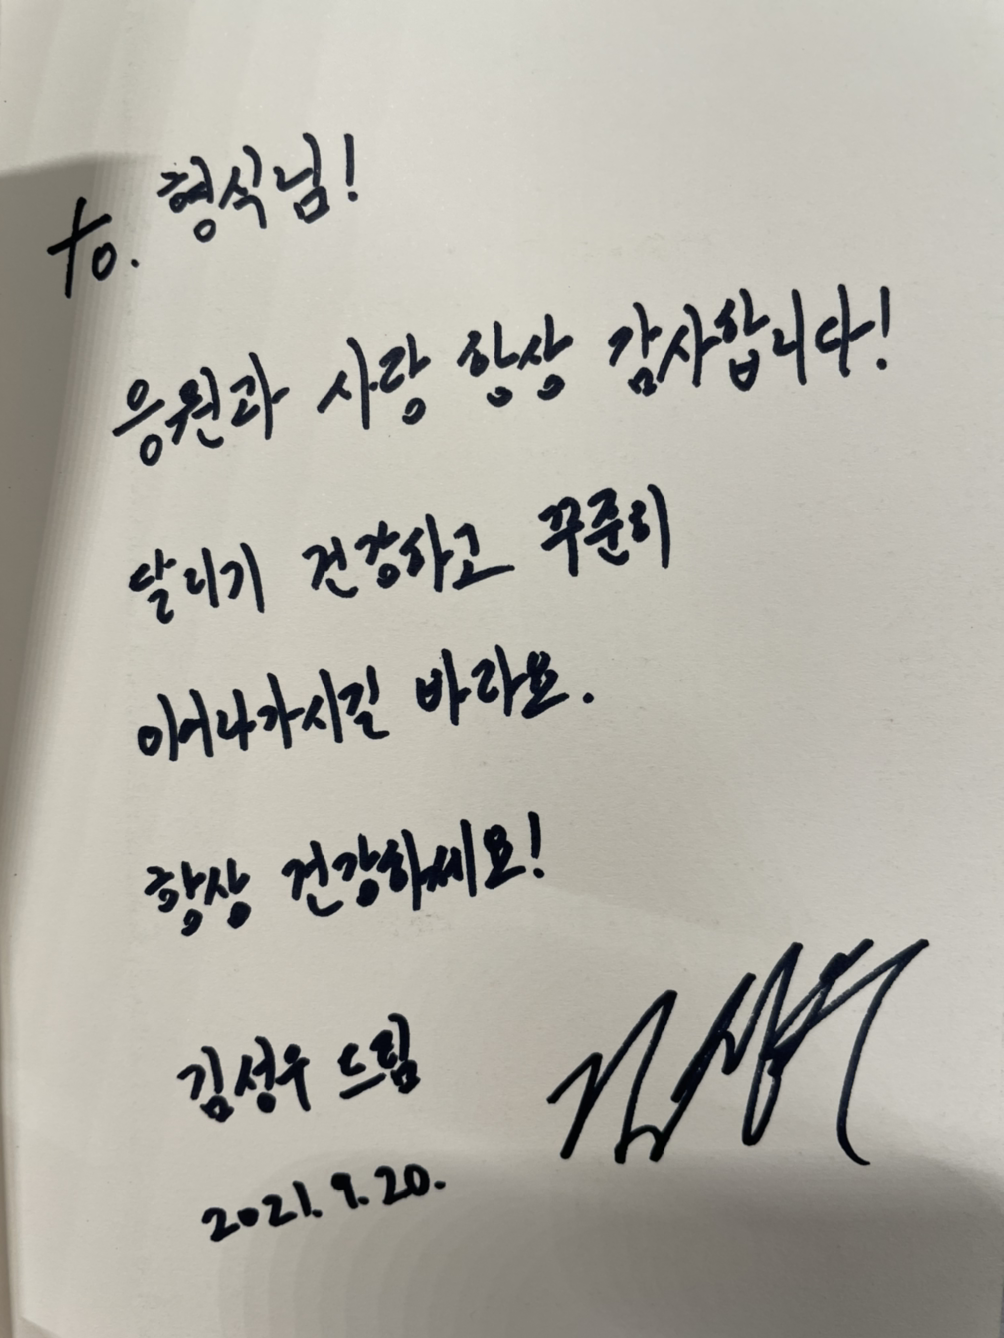 to. 형식님!
응원과 사랑 항상 감사합니다!
달리기 건강하고 꾸준히
이어나가시길 바라요.
항상 건강하세요!
김성우 드림
2021. 9. 20.